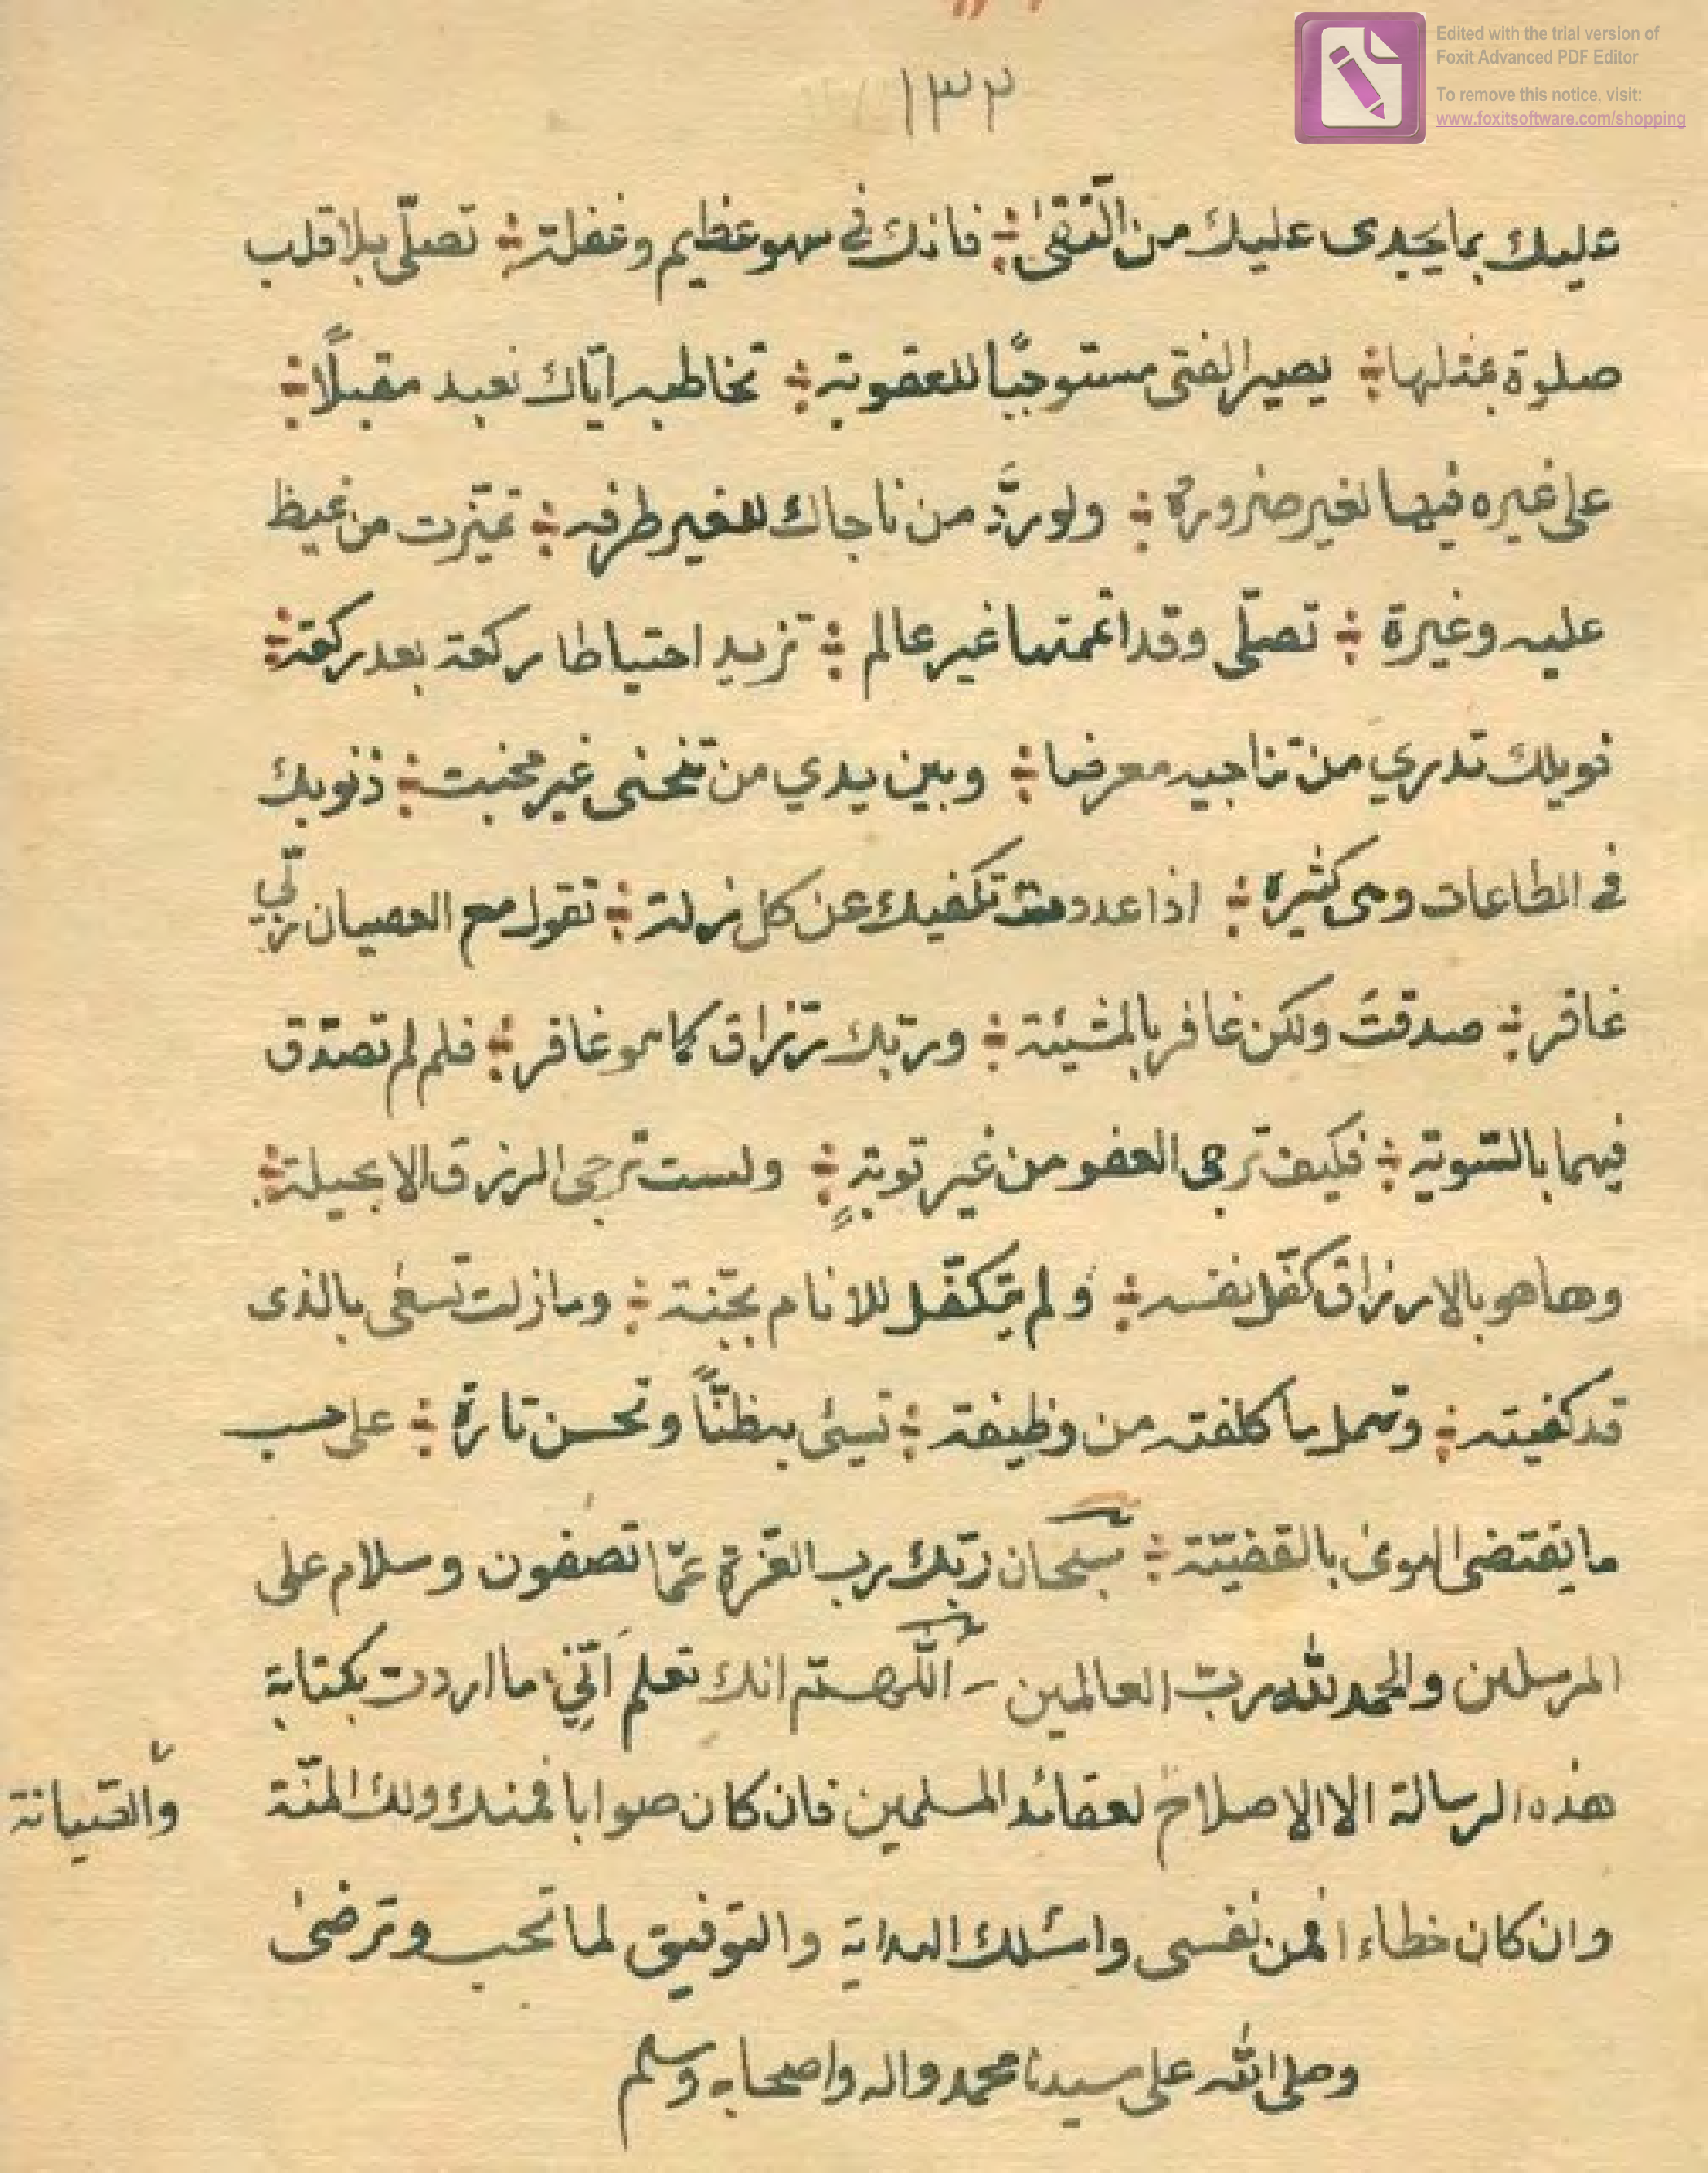 Edited with the trial version of
Foxit Advanced PDF Editor
To remove this notice, visit:
www.foxitsoftware.com/shopping
١٣٢
عليك بما يجدى عليك من التقىٰ ÷ فانك فى سهو عظيم وغفلة ÷ تصلّى بلا قلب
صلوة بمثلها ÷ يصير الفتى مستوجبًا للعقوبة ÷ تخاطبه ايّاك نعبد مقبلًا ÷
على غيره فيها لغير ضرورة ÷ ولو ردَّ من ناجاك للغير طرفه ÷ تميّزت من غيظ
عليه وغيرة ÷ تصلّى وقد اتممتها غير عالم ÷ تزيد احتياطا ركعة بعد ركعة ÷
فويلك تدري من تناجيه معرضا ÷ وبين يدي من تنحنى غير مخبت ÷ ذنوبك
فى الطاعات وهى كثيرة ÷ اذا عددت تكفيك عن كل زلة ÷ تقول مع العصيان ربّي
غافر ÷ صدقتَ ولكن غافر بالمشيئة ÷ وربّك رزاق كما هو غافر ÷ فلم لم تصدّق
فيهما بالسّوية ÷ فكيف ترجى العفو من غير توبةٍ ÷ ولست ترجى الرزق الا بحيلة ÷
وها هو بالارزاق كفّل نفسه ÷ ولم يتكفّل للانام بجنّة ÷ وما زلت تسعى بالذى
قد كفيته ÷ وتهمل ما كلفته من وظيفة ÷ تسيئ به ظنًّا وتحسن تارة ÷ على حسب
ما يقتضى الهوىٰ بالقضيّة ÷ سبحان ربّك رب العزّة عمّا تصفون وسلام على
المرسلين والحمد لله ربّ العالمين - اللّهم انك تعلم انّي ما اردت بكتابة
هذه الرسالة الا الاصلاح لعقائد المسلمين فان كان صوابا فمنك ولك المنّة
والصّيانة
وان كان خطاءا فمن نفسى واسئلك الهداية والتوفيق لما تحب وترضىٰ
وصلى الله على سيدنا محمد واله واصحابه وسلم